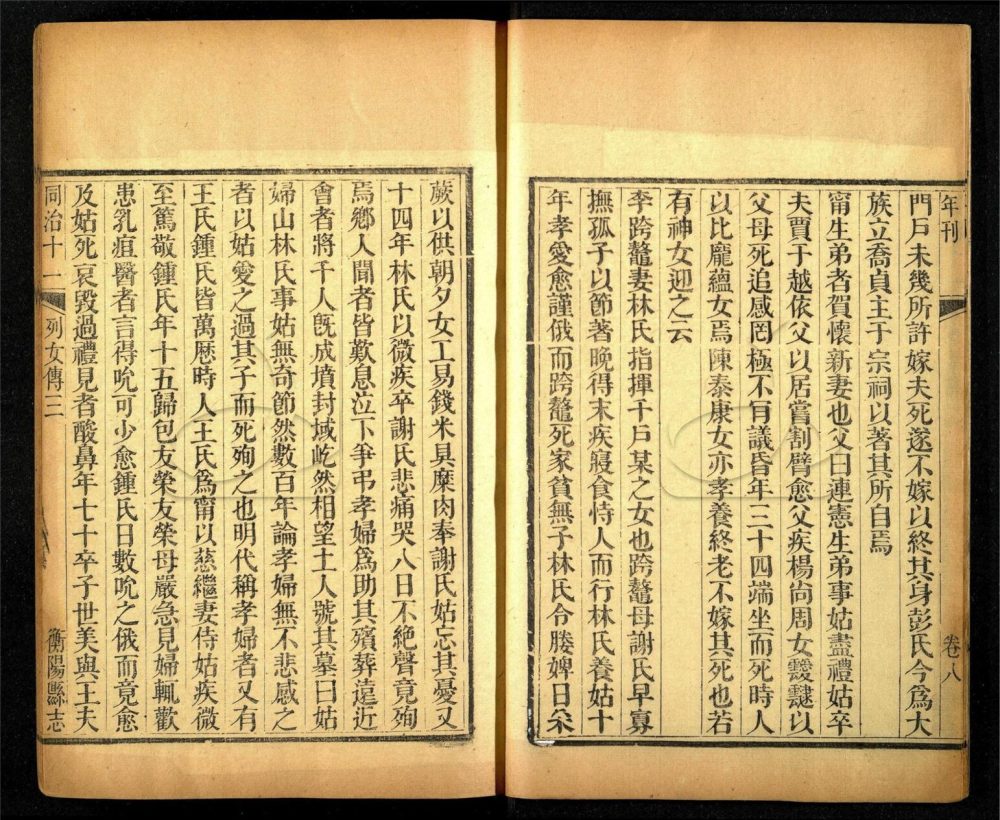 年刊 卷八
門戶未幾所許嫁夫死遂不嫁以終其身彭氏今爲大
族立喬貞主于宗祠以著其所自焉
甯生弟者賀懷新妻也父曰連憲生弟事姑盡禮姑卒
夫賈于越依父以居嘗割臂愈父疾楊尙周女靉靆以
父母死追感罔極不肎議昏年三十四端坐而死時人
以比龐蘊女焉陳泰康女亦孝養終老不嫁其死也若
有神女迎之云
李跨鼇妻林氏指揮十戶某之女也跨鼇母謝氏早寡
撫孤子以節著晚得末疾寢食恃人而行林氏養姑十
年孝愛愈謹俄而跨鼇死家貧無子林氏令媵婢日采
蕨以供朝夕女工易錢米具糜肉奉謝氏姑忘其憂又
十四年林氏以微疾卒謝氏悲痛哭八日不絕聲竟殉
焉鄉人聞者皆歎息泣下爭弔孝婦爲助其殯葬遠近
會者將千人旣成墳封域屹然相望土人號其墓曰姑
婦山林氏事姑無奇節然數百年論孝婦無不悲感之
者以姑愛之過其子而死殉之也明代稱孝婦者又有
王氏鍾氏皆萬厯時人王氏爲甯以慈繼妻侍姑疾微
至篤敬鍾氏年十五歸包友榮友榮母嚴急見婦輒歡
患乳疽醫者言得吮可少愈鍾氏日數吮之俄而竟愈
及姑死哀毀過禮見者酸鼻年七十卒子世美與王夫
同治十一 列女傳三 衡陽縣志